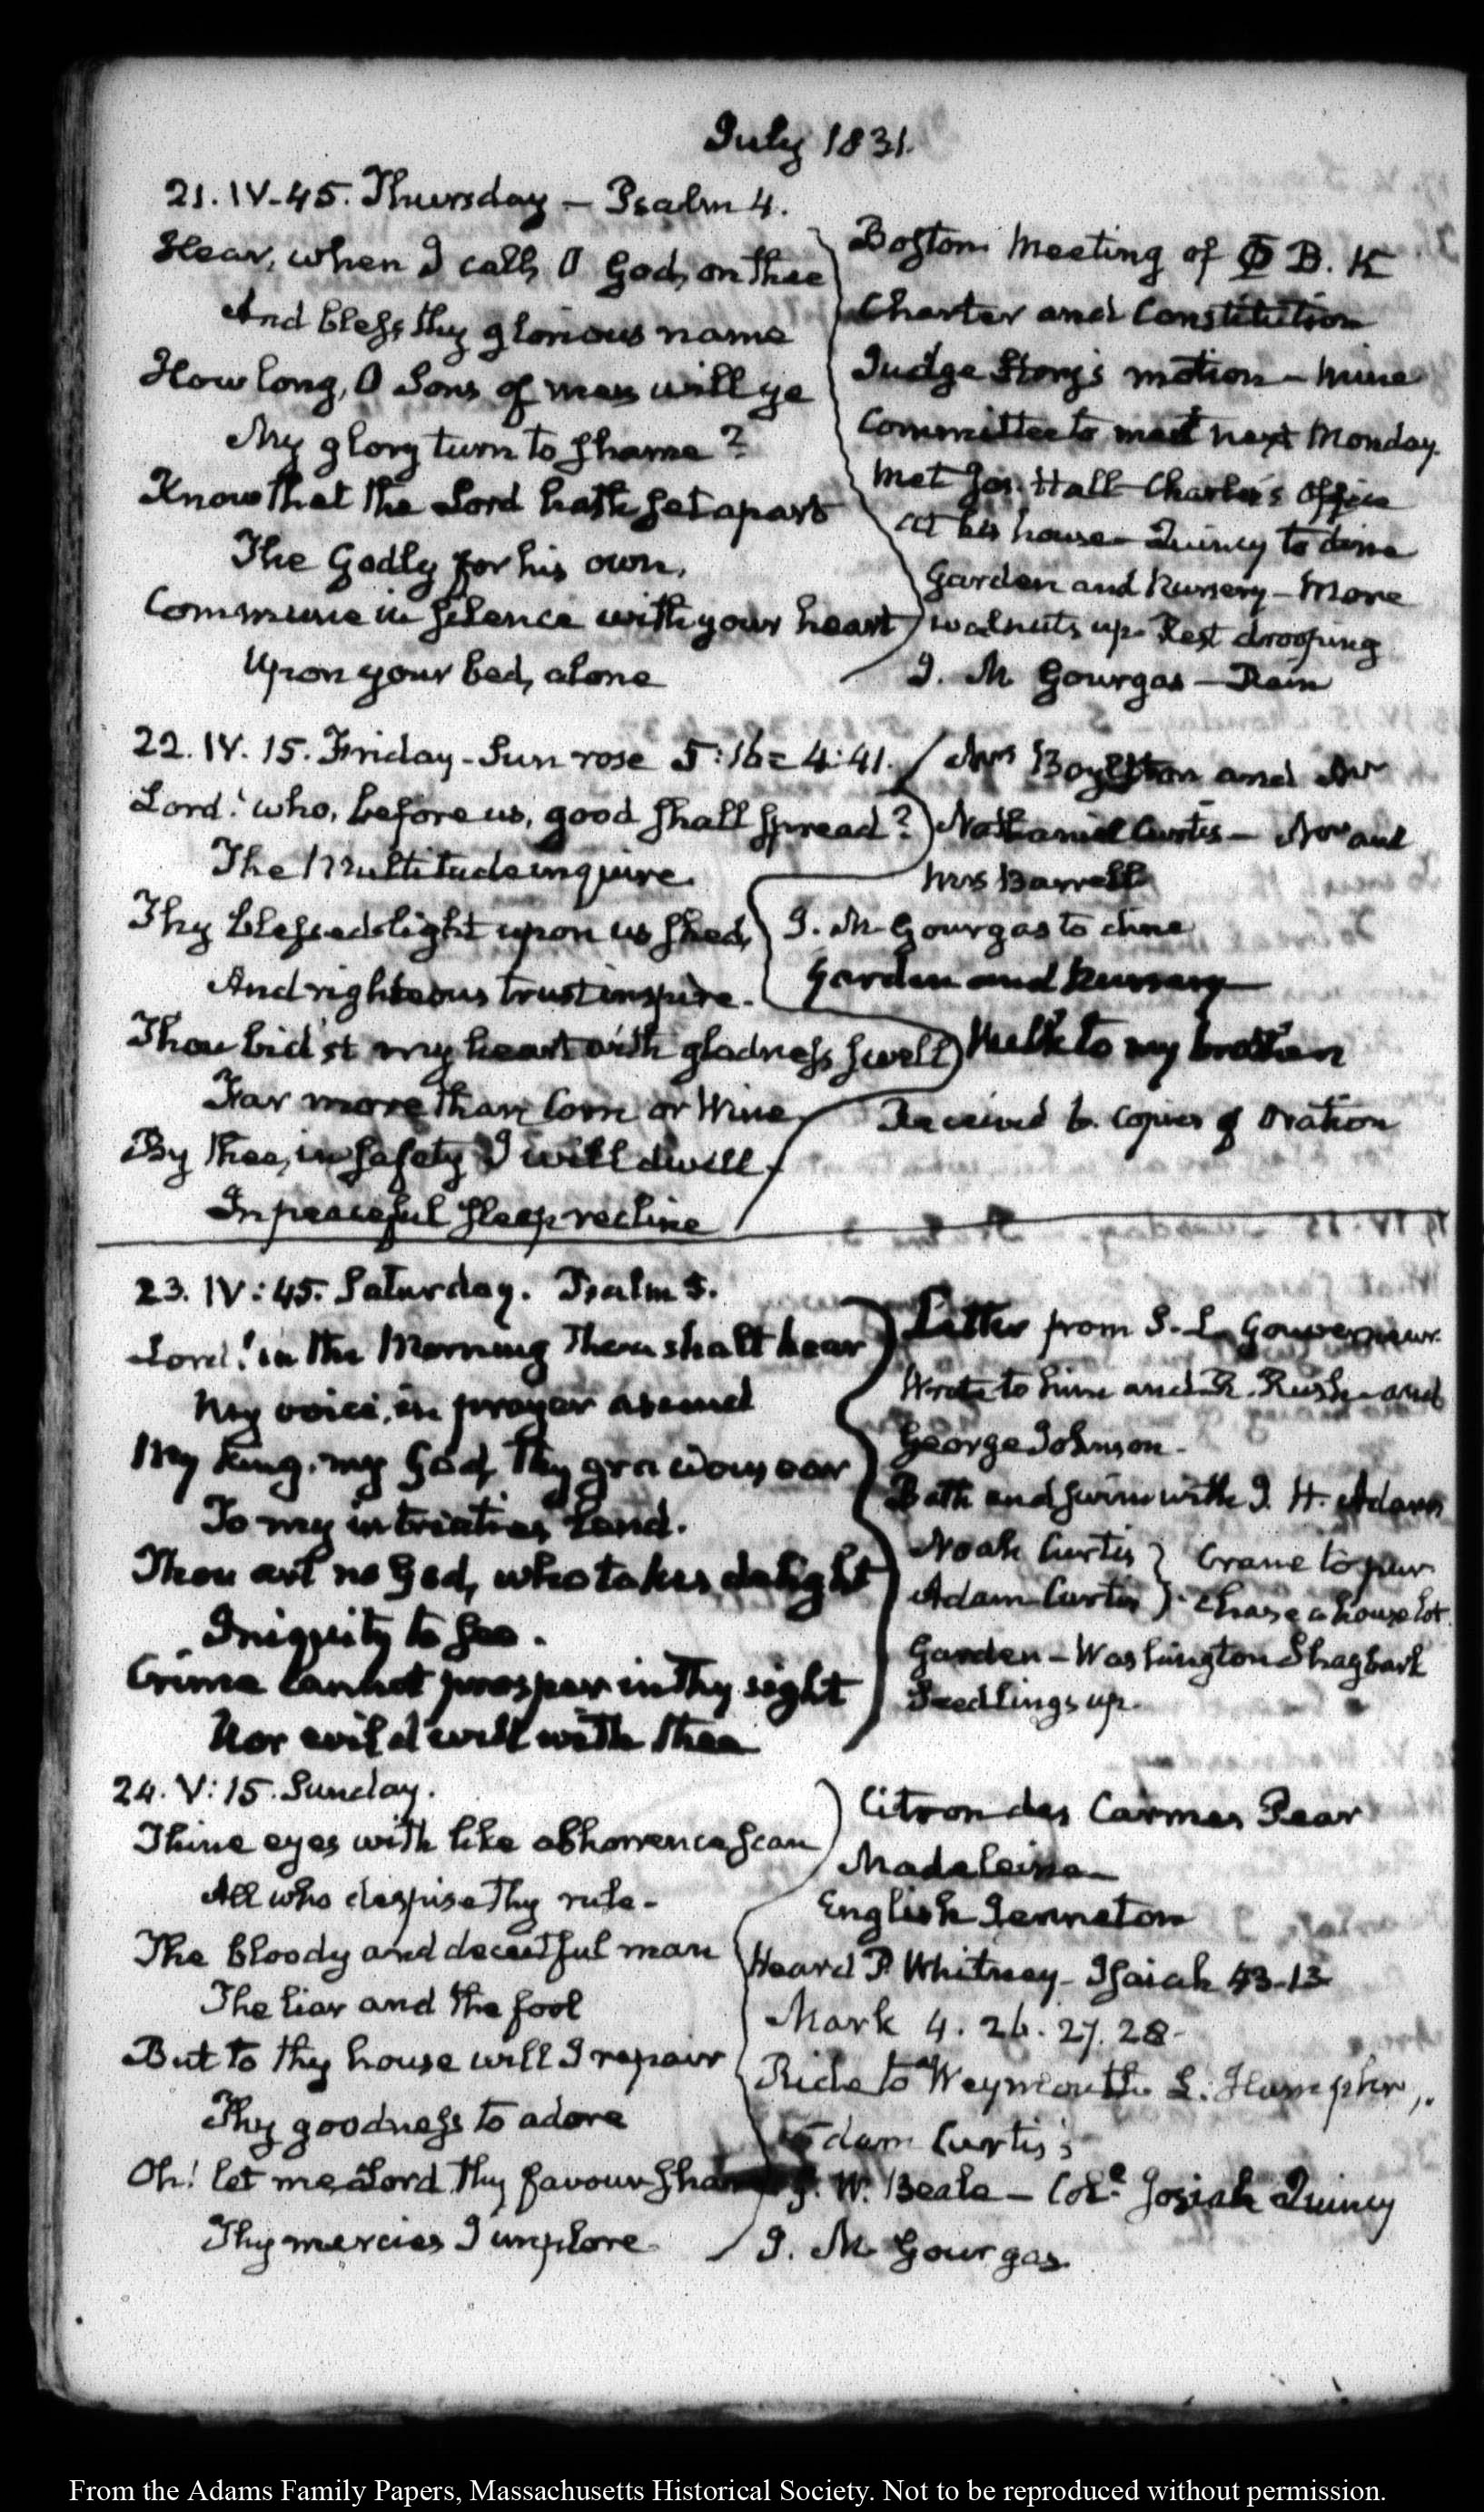 July 1831.
21. IV-45. Thursday – Psalm 4.
Hear, when I call, O God, on thee
And bless thy glorious name
How long, O Sons of men will ye
My glory turn to shame?
Know that the Lord hath set apart
The Godly for his own,
Commune in silence with your heart
Upon your bed, alone
Boston Meeting of Φ B. K
Charter and Constitution
Judge Story's motion – mine
Committee to meet next Monday.
Met Jos. Hall Charles's Office
at his house – Quincy to dine
Garden and Nursery – More
walnuts up. Rest drooping
I. M Gourgas – Rain
22. IV. 15. Friday – Sun rose 5:16 = 4:41.
Lord! who, before us, good shall spread?
The Multitude inquire.
Thy blessed light upon us shed,
And righteous trust inspire.
Thou bid'st my heart with gladness swell
Far more than Corn or Wine
By thee, in safety I will dwell,
In peaceful sleep recline
Mrs Boylston and Mr
Nathaniel Curtis – Mr and
Mrs Barrell
I. M Gourgas to dine
Garden and Nursery
Walk to my brother
Received 6. Copies of Oration
23. IV: 45. Saturday. Psalm 5.
Lord! in the Morning Thou shalt hear
My voice, in prayer ascend
My King, my God, thy gracious ear
To my intreaties lend.
Thou art no God, who takes delight
Iniquity to see.
Crime cannot prosper in thy sight
Nor evil dwell with thee
Letter from S. L. Gouverneur.
Wrote to him and R. Rush – and
George Johnson.
Bath and swim with I. H. Adams
Noah Curtis } Crane to pur
Adam Curtis } chase a house lot.
Garden – Washington Shagbark
Seedlings up.
24. V: 15. Sunday.
Thine eyes with like abhorrence scan
All who despise thy rule –
The bloody and deceitful man
The liar and the fool
But to thy house will I repair
Thy goodness to adore
Oh! let me, Lord, thy favour share
Thy mercies I implore.
Citron des Carmes Pear
Madeleine
English Jenneton
Heard P. Whitney – Isaiah 43-13
Mark 4. 26. 27. 28 –
Ride to Weymouth L. Humphr
Adam Curtis's
G. W. Beale – Cole Josiah Quincy
I. M Gourgas.
From the Adams Family Papers, Massachusetts Historical Society. Not to be reproduced without permission.